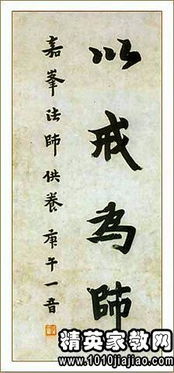 以戒為師
嘉峯法師供養 庚午一音
精英家教网
www.1010jiajiao.com